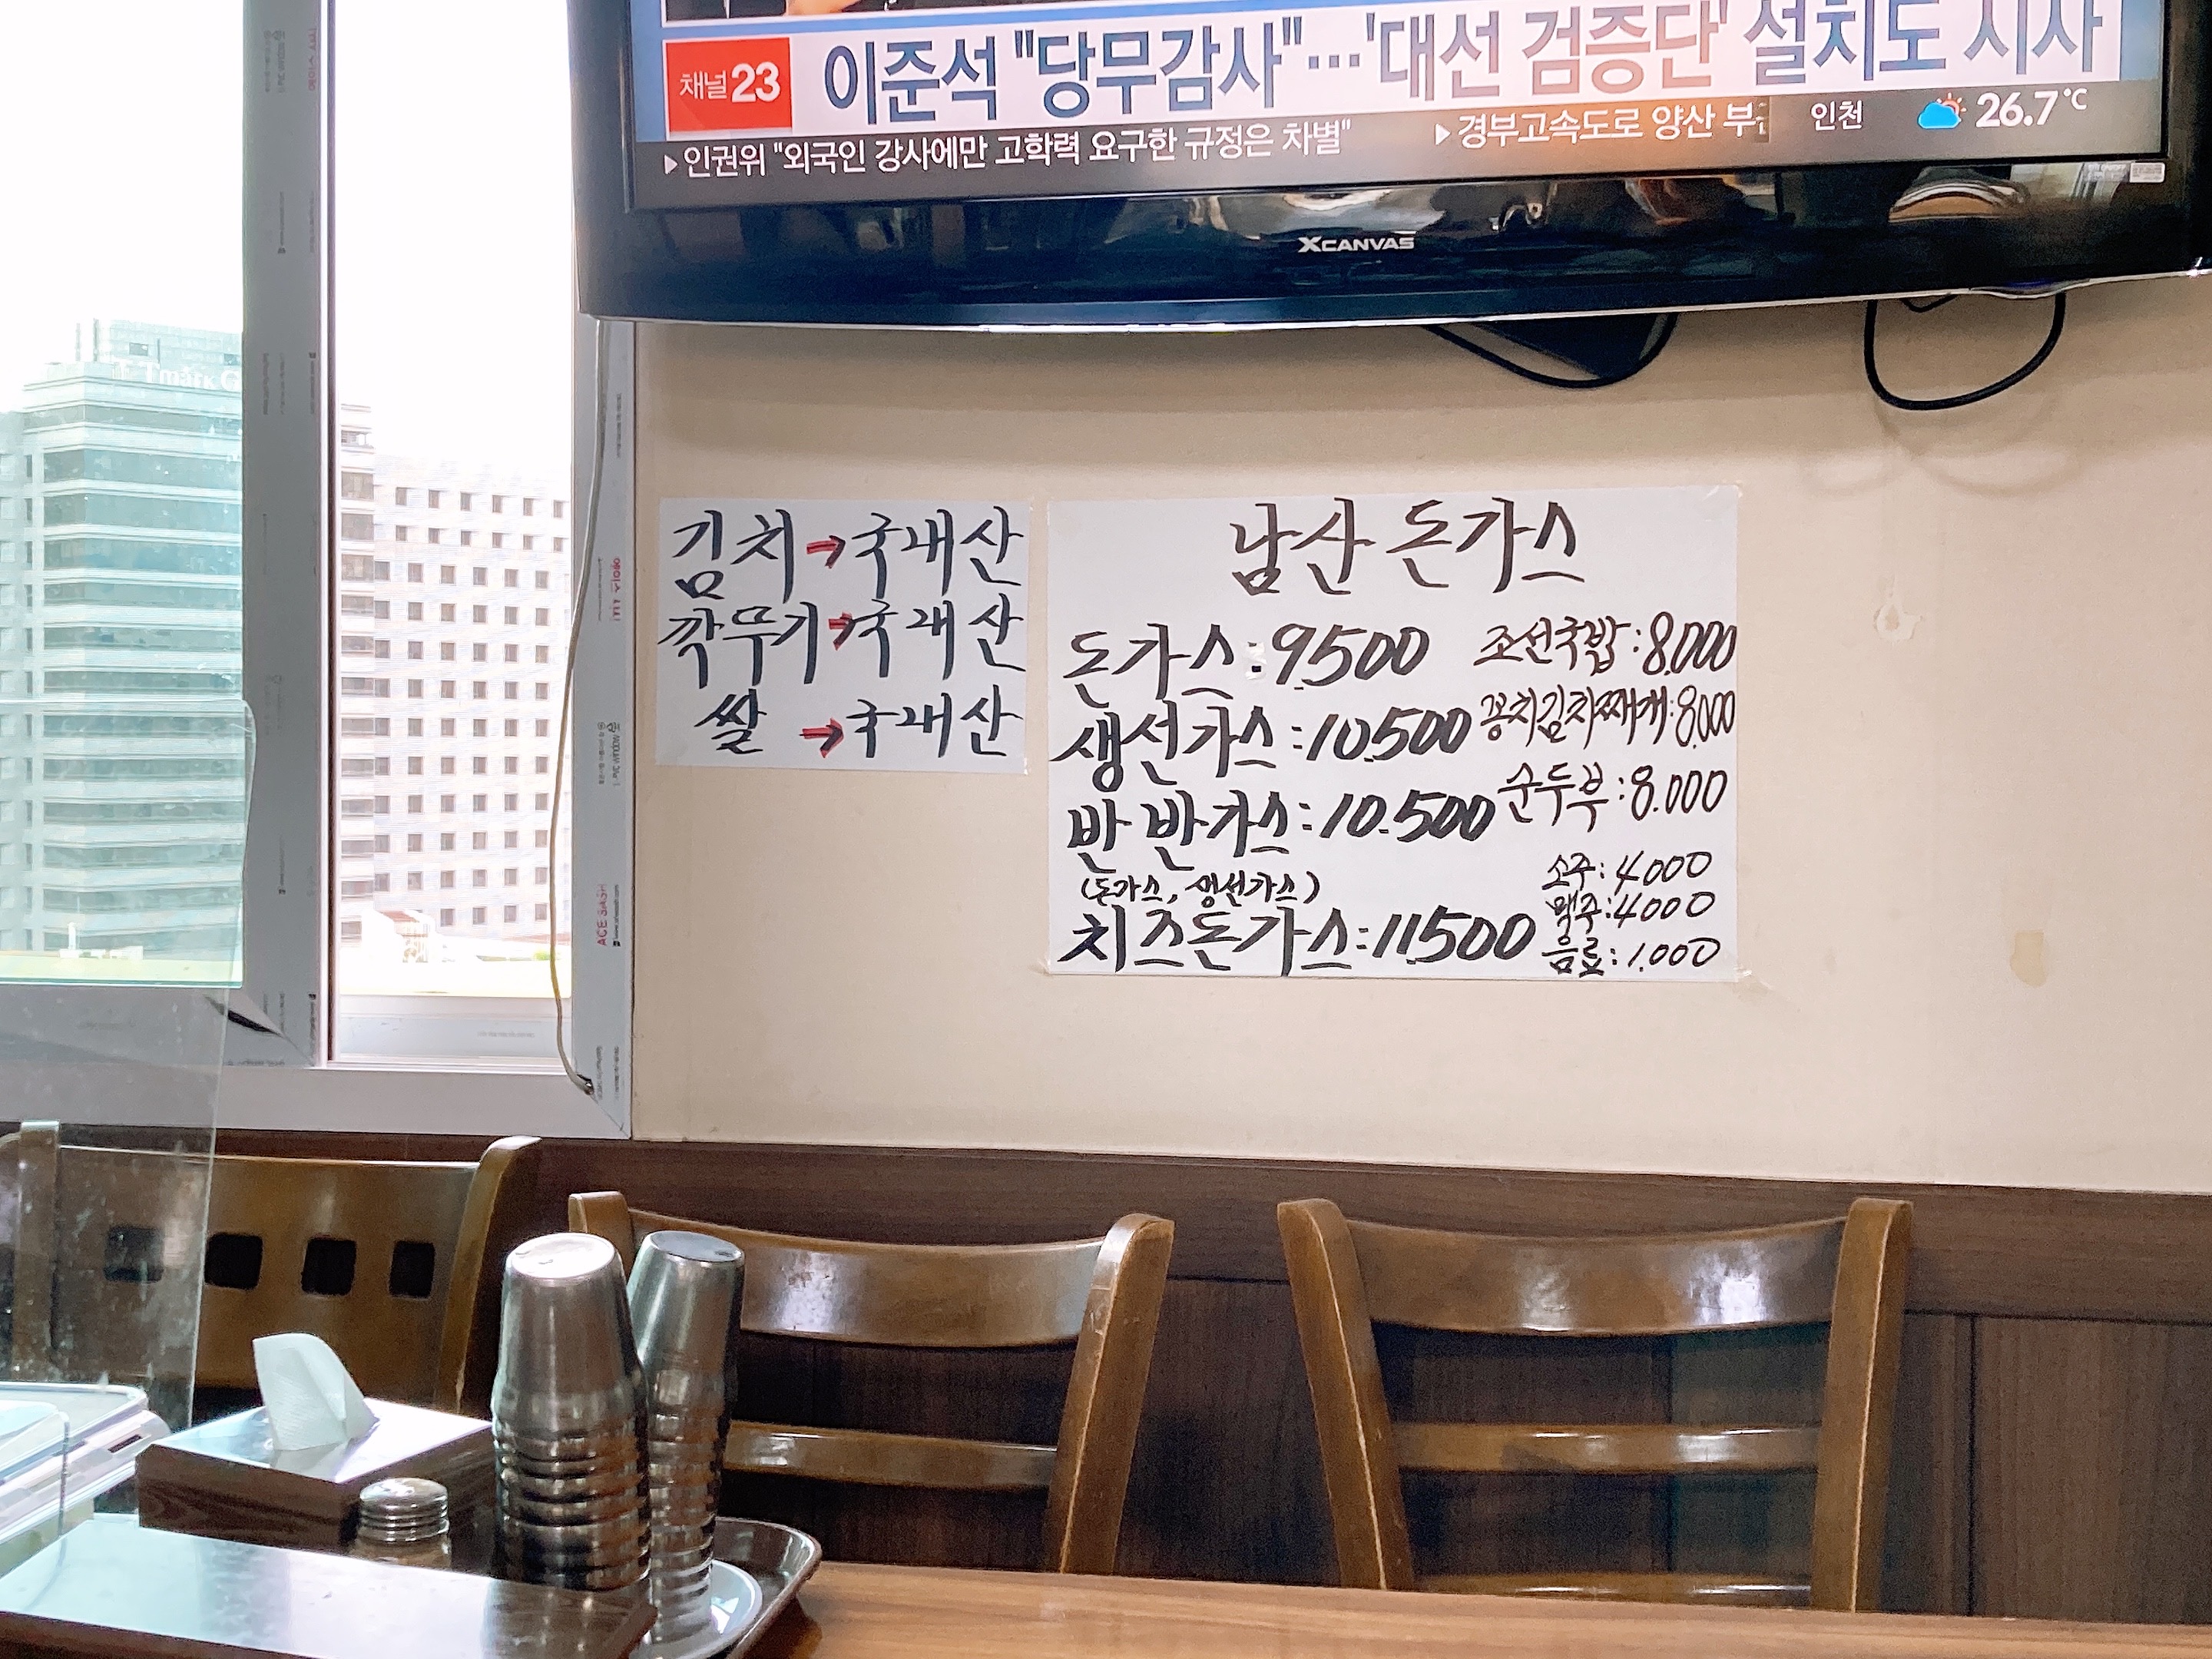 채널 23 이준석 "당무감사"…'대선 검증단' 설치도 시사
▶인권위 "외국인 강사에만 고학력 요구한 규정은 차별" ▶경부고속도로 양산 인천 26.7℃
XCANVAS
Tmark
김치→국내산
깍뚜기→국내산
쌀→국내산
남산 돈가스
돈가스:9.500
생선가스:10.500
반반가스:10.500
(돈가스, 생선가스)
치즈돈가스:11.500
조선국밥:8.000
꽁치김치찌개:8.000
순두부:8.000
소주:4.000
맥주:4000
음료:1.000
ACE SASH